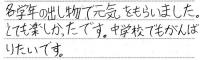 各学年の出し物で元気をもらいました。
とても楽しかったです。中学校でもがんば
りたいです。